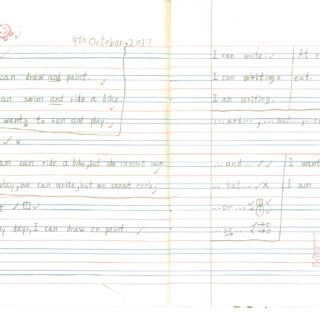 9th October, 2017
can draw and paint.
can swim and ride a bike.
wants to run and play.
am can ride a bike, but she cannot
day, we can write, but we cannot cook.
y days, I can draw or paint.
I can write.
I can writing x
I am writing.
At
eat.
...and..., ...but...,
...and...
...but...
...or...
...so...
I want
I am